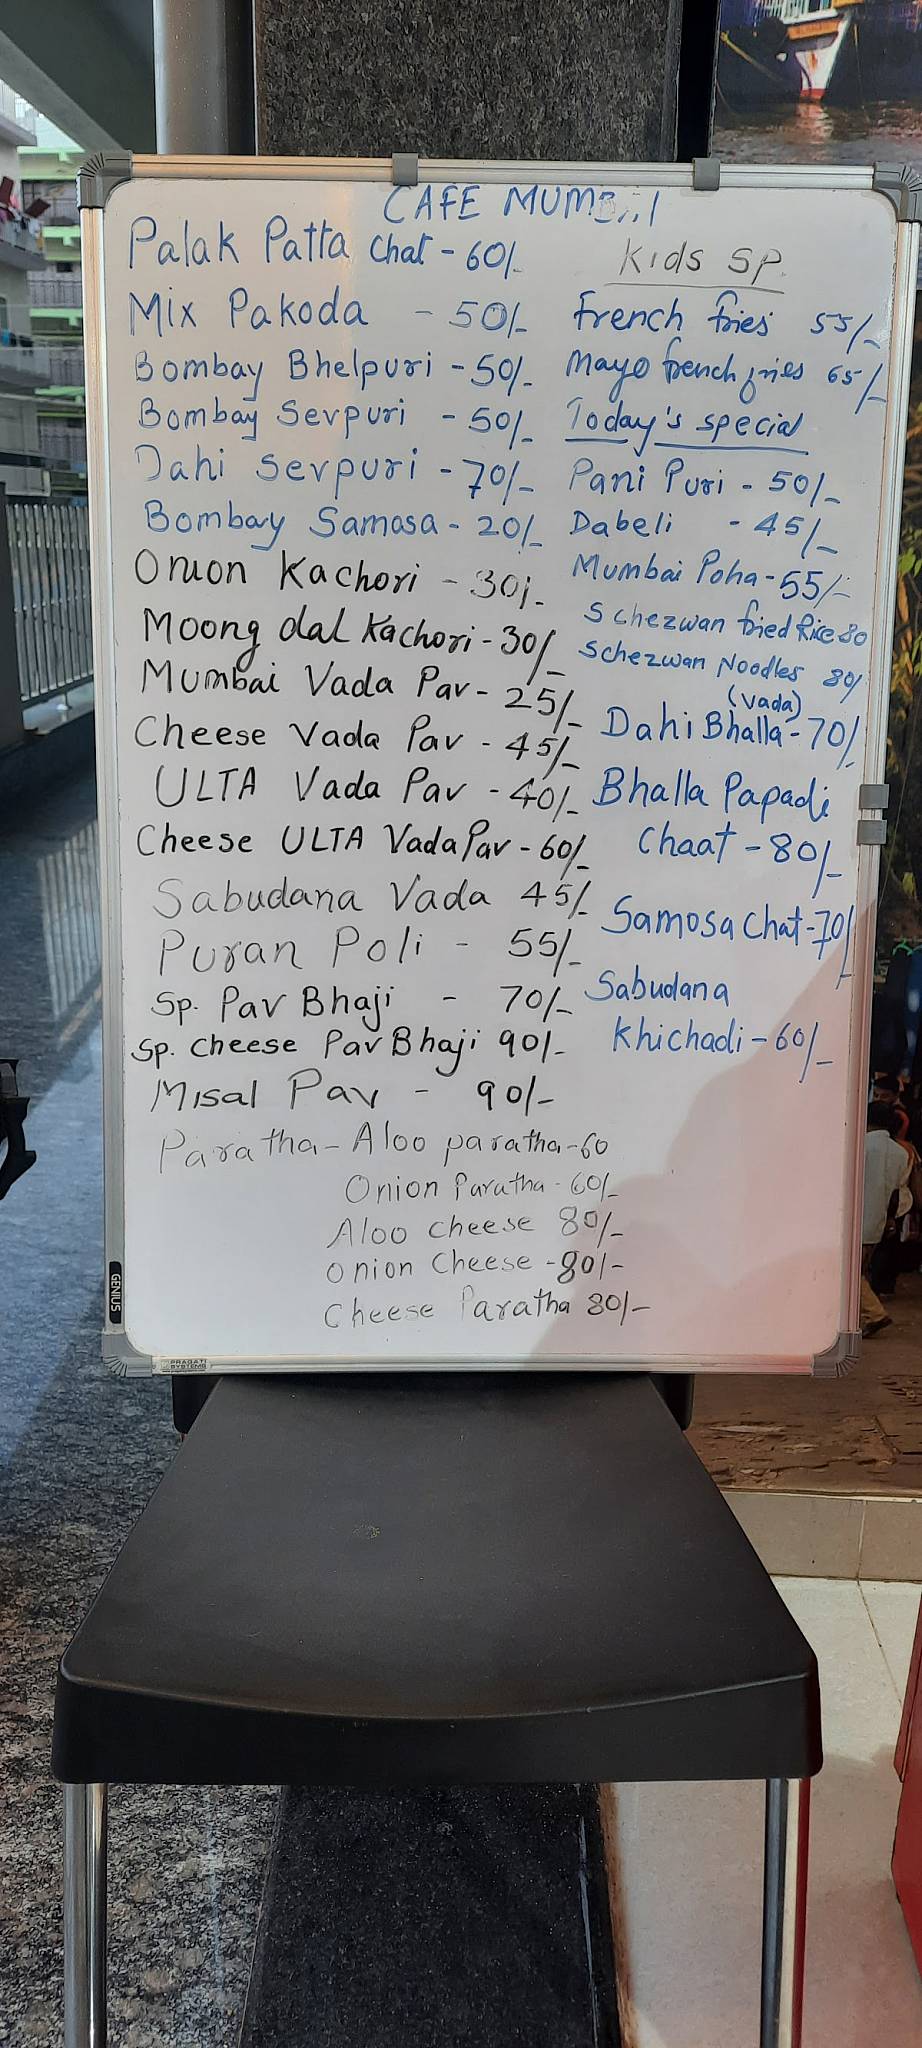 CAFE MUMBAI
Palak Patta Chat - 60/-
Mix Pakoda - 50/-
Bombay Bhelpuri - 50/-
Bombay Sevpuri - 50/-
Dahi Sevpuri - 70/-
Bombay Samosa - 20/-
Onion Kachori - 30/-
Moong dal Kachori - 30/-
Mumbai Vada Pav - 25/-
Cheese Vada Pav - 45/-
ULTA Vada Pav - 40/-
Cheese ULTA Vada Pav - 60/-
Sabudana Vada 45/-
Puran Poli - 55/-
Sp. Pav Bhaji - 70/-
Sp. Cheese Pav Bhaji 90/-
Misal Pav - 90/-
Paratha - Aloo paratha - 60
Onion Paratha - 60/-
Aloo Cheese 80/-
Onion Cheese - 80/-
Cheese Paratha 80/-
Kids SP.
French fries 55/-
Mayo french fries 65/-
Today's special
Pani Puri - 50/-
Dabeli - 45/-
Mumbai Poha - 55/-
Schezwan fried Rice 80
Schezwan Noodles 80/
(Vada)
Dahi Bhalla - 70/-
Bhalla Papadi
Chaat - 80/-
Samosa Chat - 70/-
Sabudana
Khichadi - 60/-
GENIUS
PRAGATI
SYSTEMS